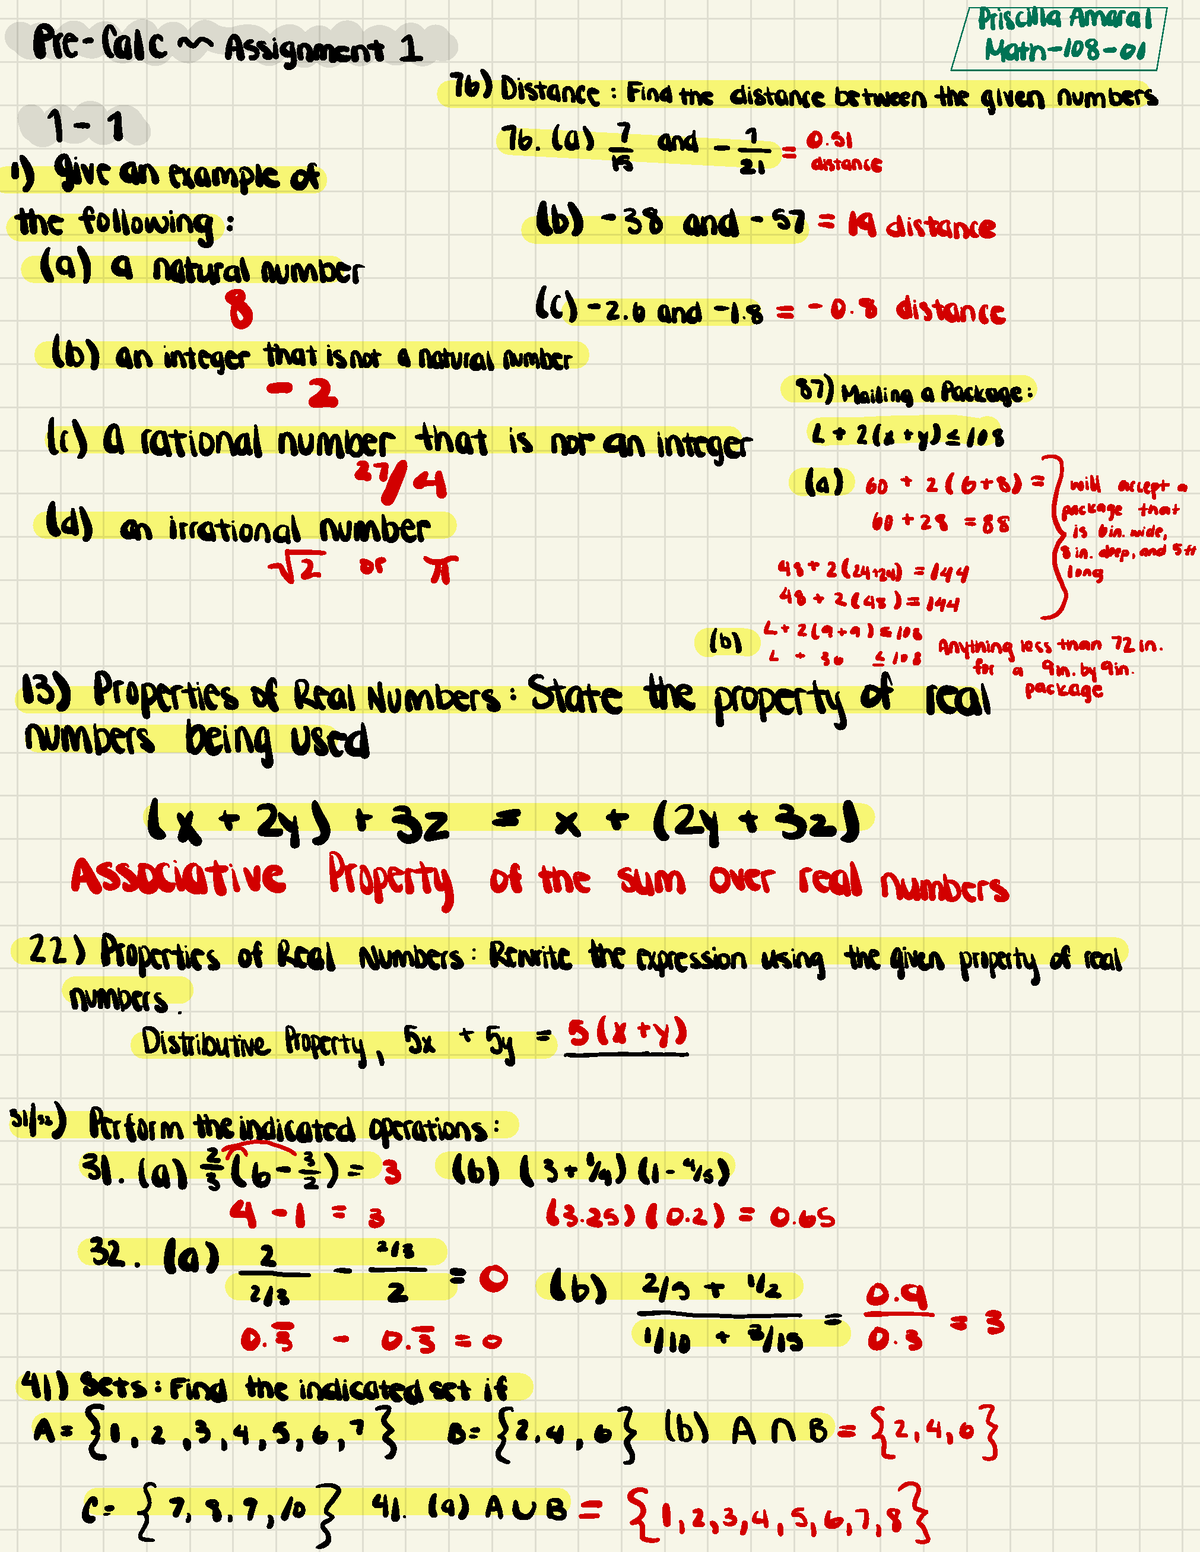 Pre-Calc ~ Assignment 1
Priscilla Amaral
Math-108-01
1-1
1) Give an example of
the following:
(a) a natural number
8
(b) an integer that is not a natural number
-2
(c) a rational number that is not an integer
27/4
(d) an irrational number
√2 or π
76) Distance: Find the distance between the given numbers
76. (a) 7/15 and -1/21 = 0.51
distance
(b) -38 and -57 = 19 distance
(c) -2.6 and -1.8 = -0.8 distance
87) Mailing a Package:
L + 2(x+y) ≤ 108
(a) 60 + 2(6+8) =
60 + 28 = 88
48 + 2(24+24) = 144
48 + 2(48) = 144
will accept a
package that
is 6in. wide,
8 in. deep, and 5 ft
long
(b) L + 2(9+9) ≤ 108
L + 36 ≤ 108
Anything less than 72 in.
for a 9in. by 9in.
package
13) Properties of Real Numbers: State the property of real
numbers being used
(x + 2y) + 3z = x + (2y + 3z)
Associative Property of the sum over real numbers
22) Properties of Real Numbers: Rewrite the expression using the given property of real
numbers.
Distributive Property, 5x + 5y = 5(x+y)
31/32) Perform the indicated operations:
31. (a) 2/3 (6 - 3/2) = 3 (b) (3 + 1/4) (1 - 4/5)
4 - 1 = 3 (3.25) (0.2) = 0.65
32. (a) 2 / 2/3 - 2/3 / 2 = 0
0.3̅ - 0.3̅ = 0
(b) 2/5 + 1/2 / 1/10 + 3/15 = 0.9 / 0.3 = 3
41) Sets: Find the indicated set if
A = {1, 2, 3, 4, 5, 6, 7} B = {2, 4, 6} (b) A ∩ B = {2, 4, 6}
C = {7, 8, 9, 10} 41. (a) A ∪ B = {1, 2, 3, 4, 5, 6, 7, 8}